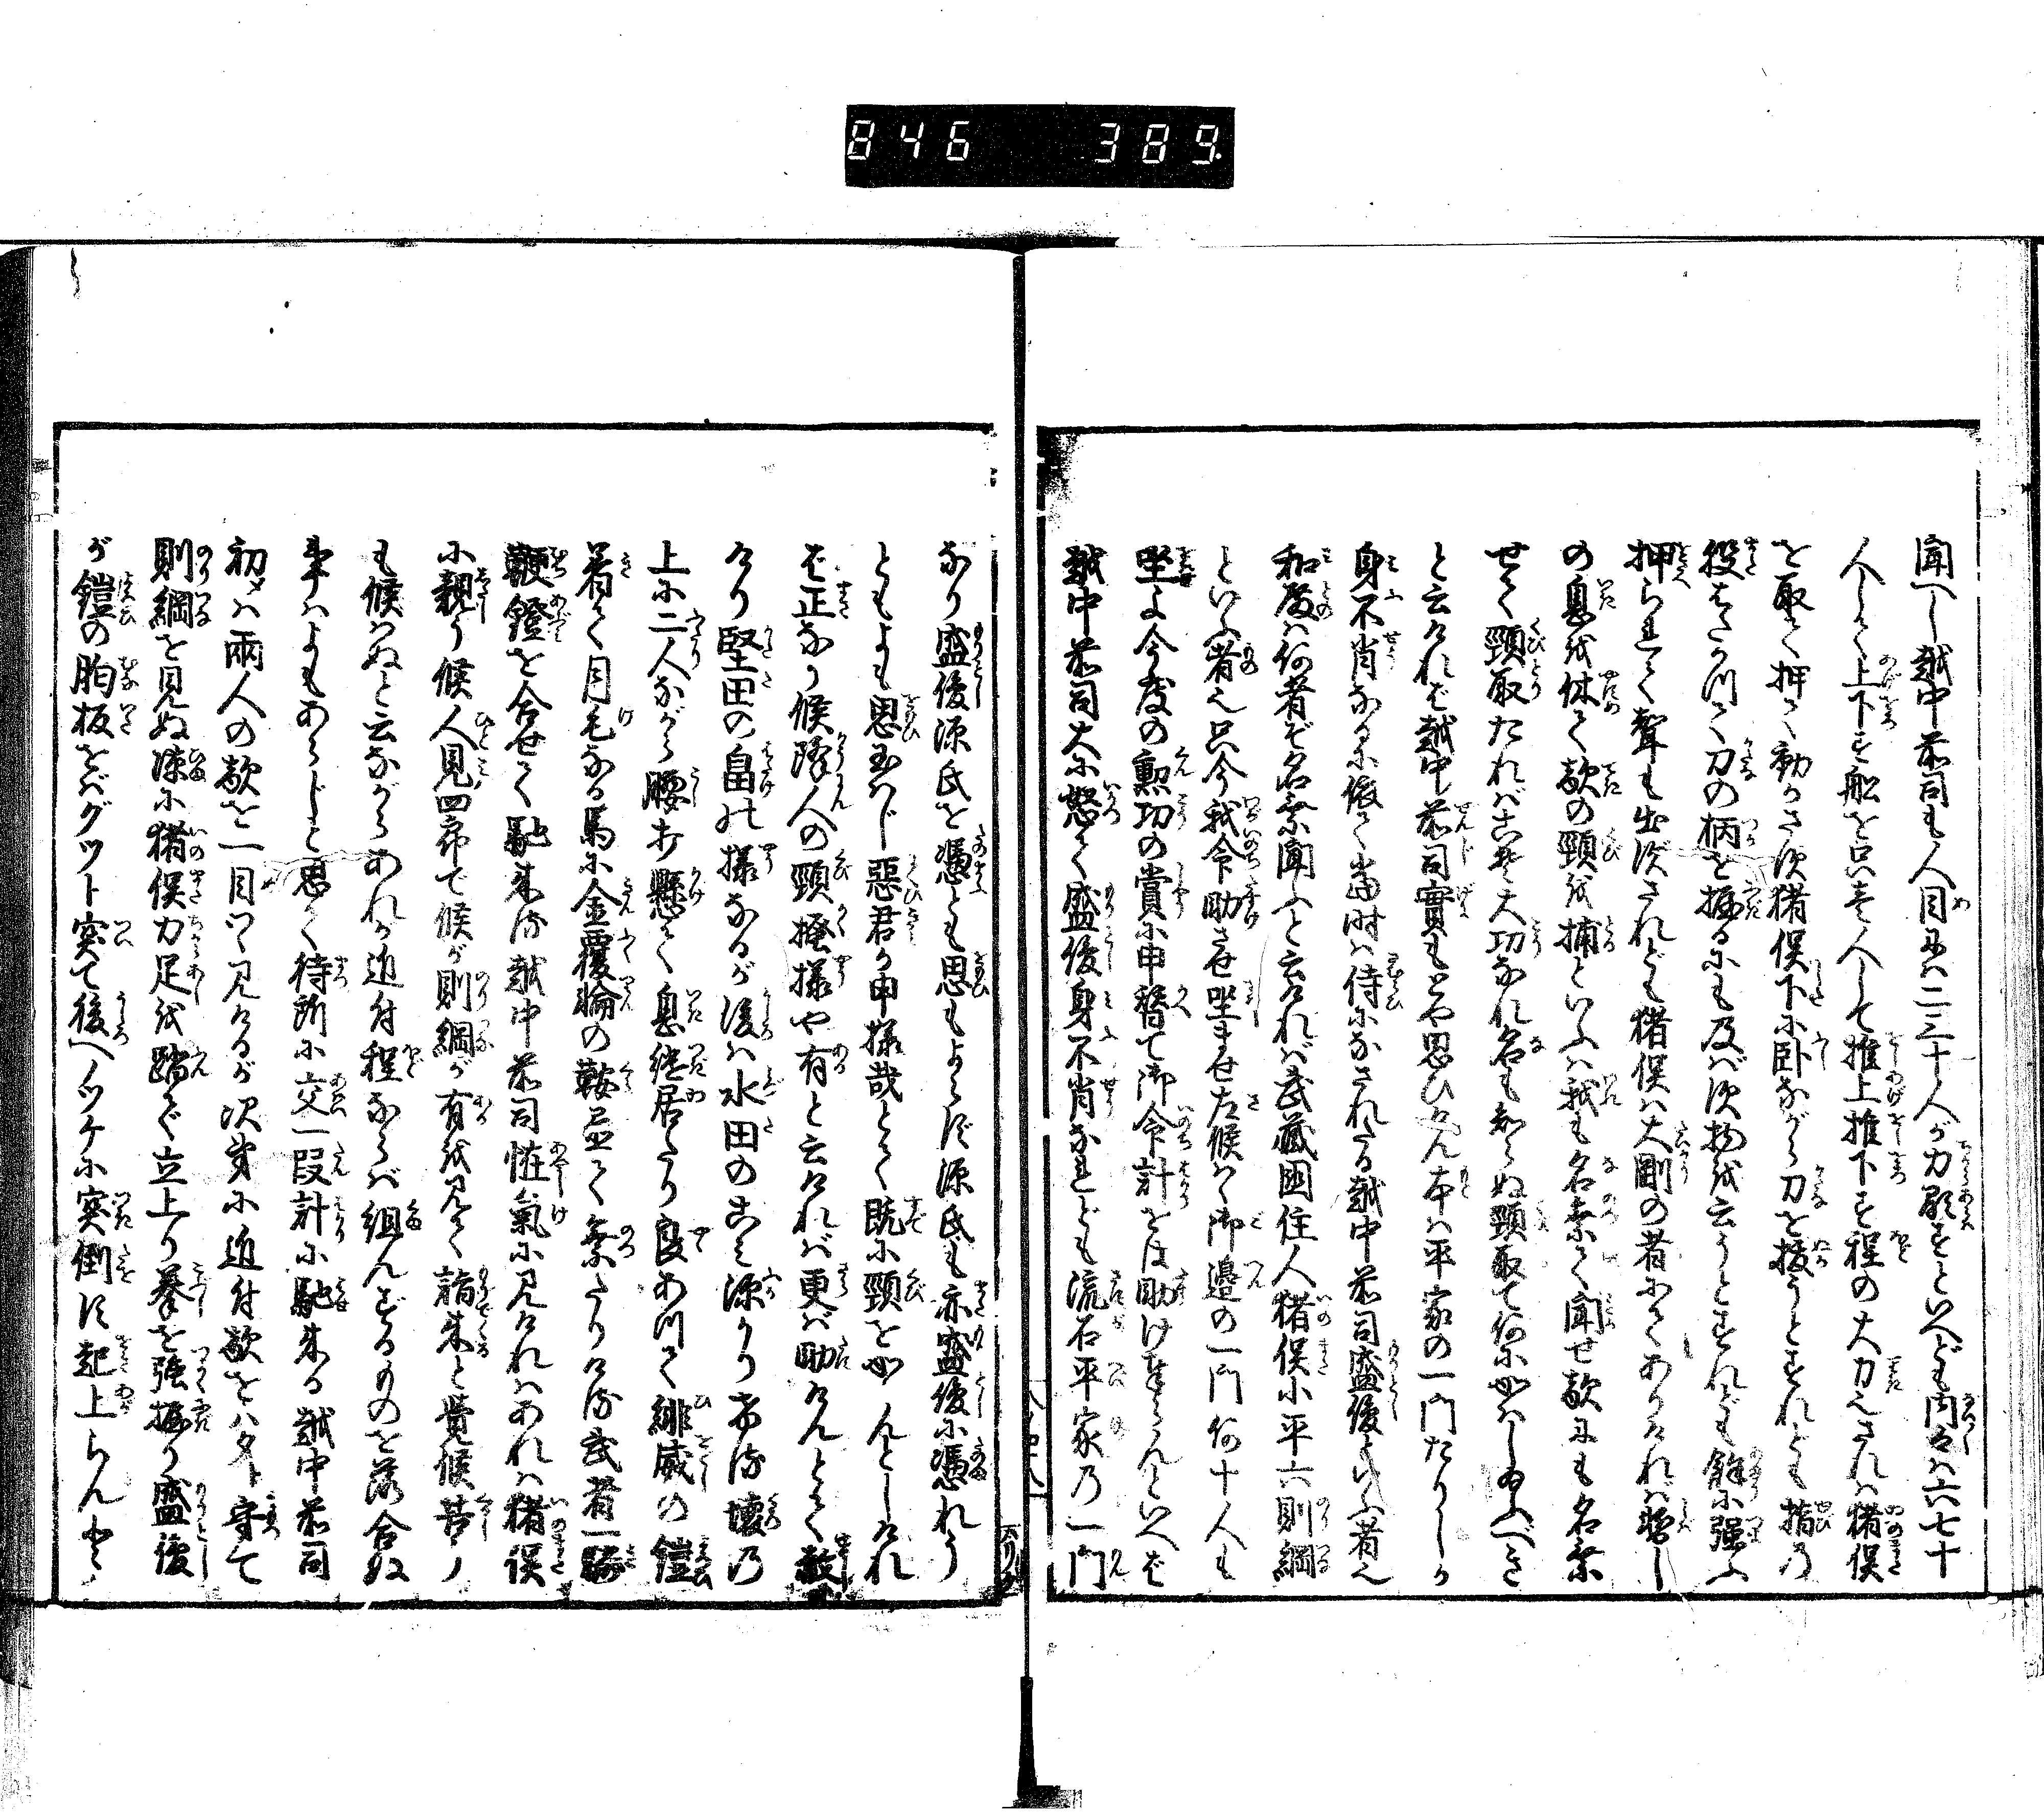 846 389.
聞へし越中前司も人目には二三十人が力顕すといへども内々は六七十
人して上下す船を只一人して推上推下す程の大力也されば猪俣
を取て押て動かさず猪俣下に臥ながら刀を抜うとすれども指の
役はだかつて刀の柄を握るにも及ばず物を云うとすれども餘に強ふ
押られて聲も出ずされども猪俣は大剛の者にてありければ暫し
の息を休て敵の頸を捕といふは我も名乗て聞せ敵にも名乗
せて頸取たればこそ大功なれ名も知らぬ頸取て何にかはし給ふべき
と云ければ越中前司實もとや思ひけん本は平家の一門たりしか
身不肖なるに依て當時は侍になされたる越中前司盛俊といふ者也
和殿は何者ぞ名乗聞ふと云ければ武蔵国住人猪俣小平六則綱
といふ者也只今我命助させ坐ませさだ候はゞ御邊の一門何十人も
坐よ今度の勲功の賞に申替て御命計をば助け奉らんといへば
越中前司大に怒て盛俊身不肖なれども流石平家の一門
なり盛俊源氏を憑とも思もよらず源氏も亦盛俊に憑れう
ともよも思玉はじ悪君が申様哉とて既に頸をかゝんとしけれ
ば正なう候降人の頸掻様や有と云ければ更ば助けんとて赦
けり堅田の畠の様なるが後は水田のこみ深かりける壊の
上に二人ながら腰打懸て息継居たり良あつて緋威の鎧
着て月毛なる馬に金覆輪の鞍置て乗たりける武者一騎
鞭鐙を合せて馳来る越中前司怪氣に見ければあれは猪俣
に親う候人見四郎で候が則綱が有を見て詣来と覚候苦ノ
も候はぬと云ながらあれが近付程ならば組んずるものを落合ぬ
事はよもあらじと思て待所に交一段計に馳来る越中前司
初メは両人の敵を一目づゝ見けるが次第に近付敵をハタト守て
則綱を見ぬ隙に猪俣力足を踏で立上り拳を強握り盛俊
が鎧の胸板をバグツト突て後へノツケに突倒す起上らんとする